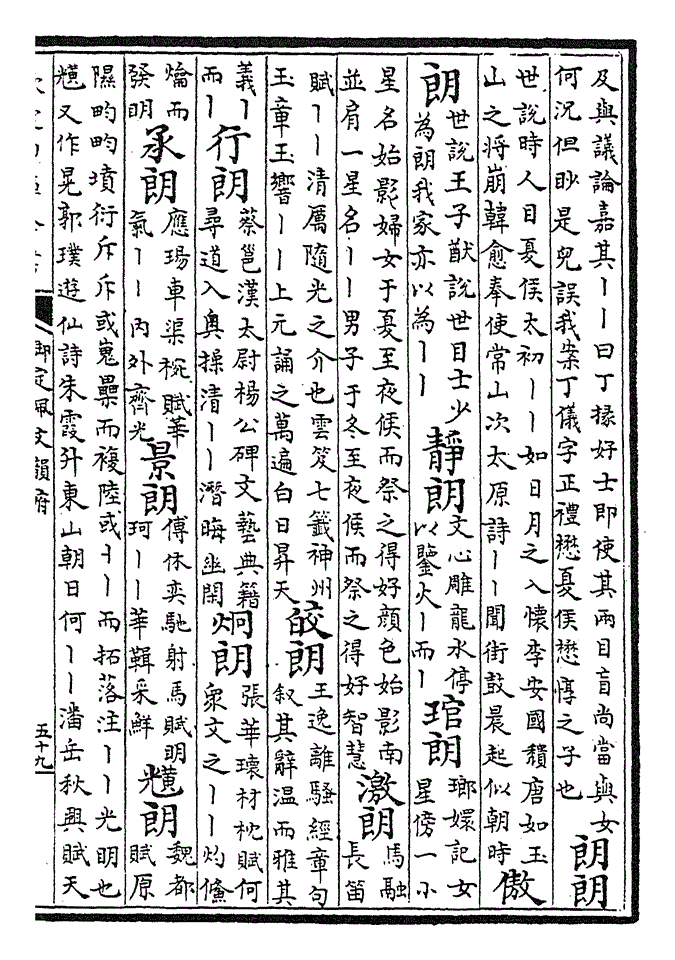 及與議論嘉其丨丨曰丁掾好士即使其兩目盲尚當與女
何況但眇是兒誤我案丁儀字正禮懋夏侯懋惇之子也
朗朗
世說時人目夏侯太初丨丨如日月之入懷李安國頹唐如玉
山之將崩韓愈奉使常山次太原詩丨丨聞街鼓晨起似朝時
傲
朗
世說王子猷說世目士少
為朗我家亦以為丨丨
靜朗
文心雕龍水停
以鑒火丨而丨
琯朗
瑯嬛記女
星傍一小
星名始影婦女于夏至夜候而祭之得好顏色始影南
並肩一星名丨丨男子于冬至夜候而祭之得好智慧
激朗
馬融
長笛
賦丨丨清厲隨光之介也雲笈七籤神州
玉章玉響丨丨上元誦之萬遍白日昇天
皎朗
王逸離騷經章句
叙其辭溫而雅其
義丨
而丨
行朗
蔡邕漢太尉楊公碑文藝典籍
尋道入奧操清丨丨潛晦幽閑
炯朗
張華瓌材枕賦何
衆文之丨丨灼儵
爚而
發明
承朗
應瑒車渠椀賦華
氣丨丨內外齊光
景朗
傅休奕馳射馬賦明
珂丨丨華鞙采鮮
爌朗
魏都
賦原
隰畇畇墳衍斥斥或嵬罍而複陸或丨丨而拓落注丨丨光明也
爌又作晃郭璞遊仙詩朱霞升東山朝日何丨丨潘岳秋興賦天
御定佩文韻府
五十九